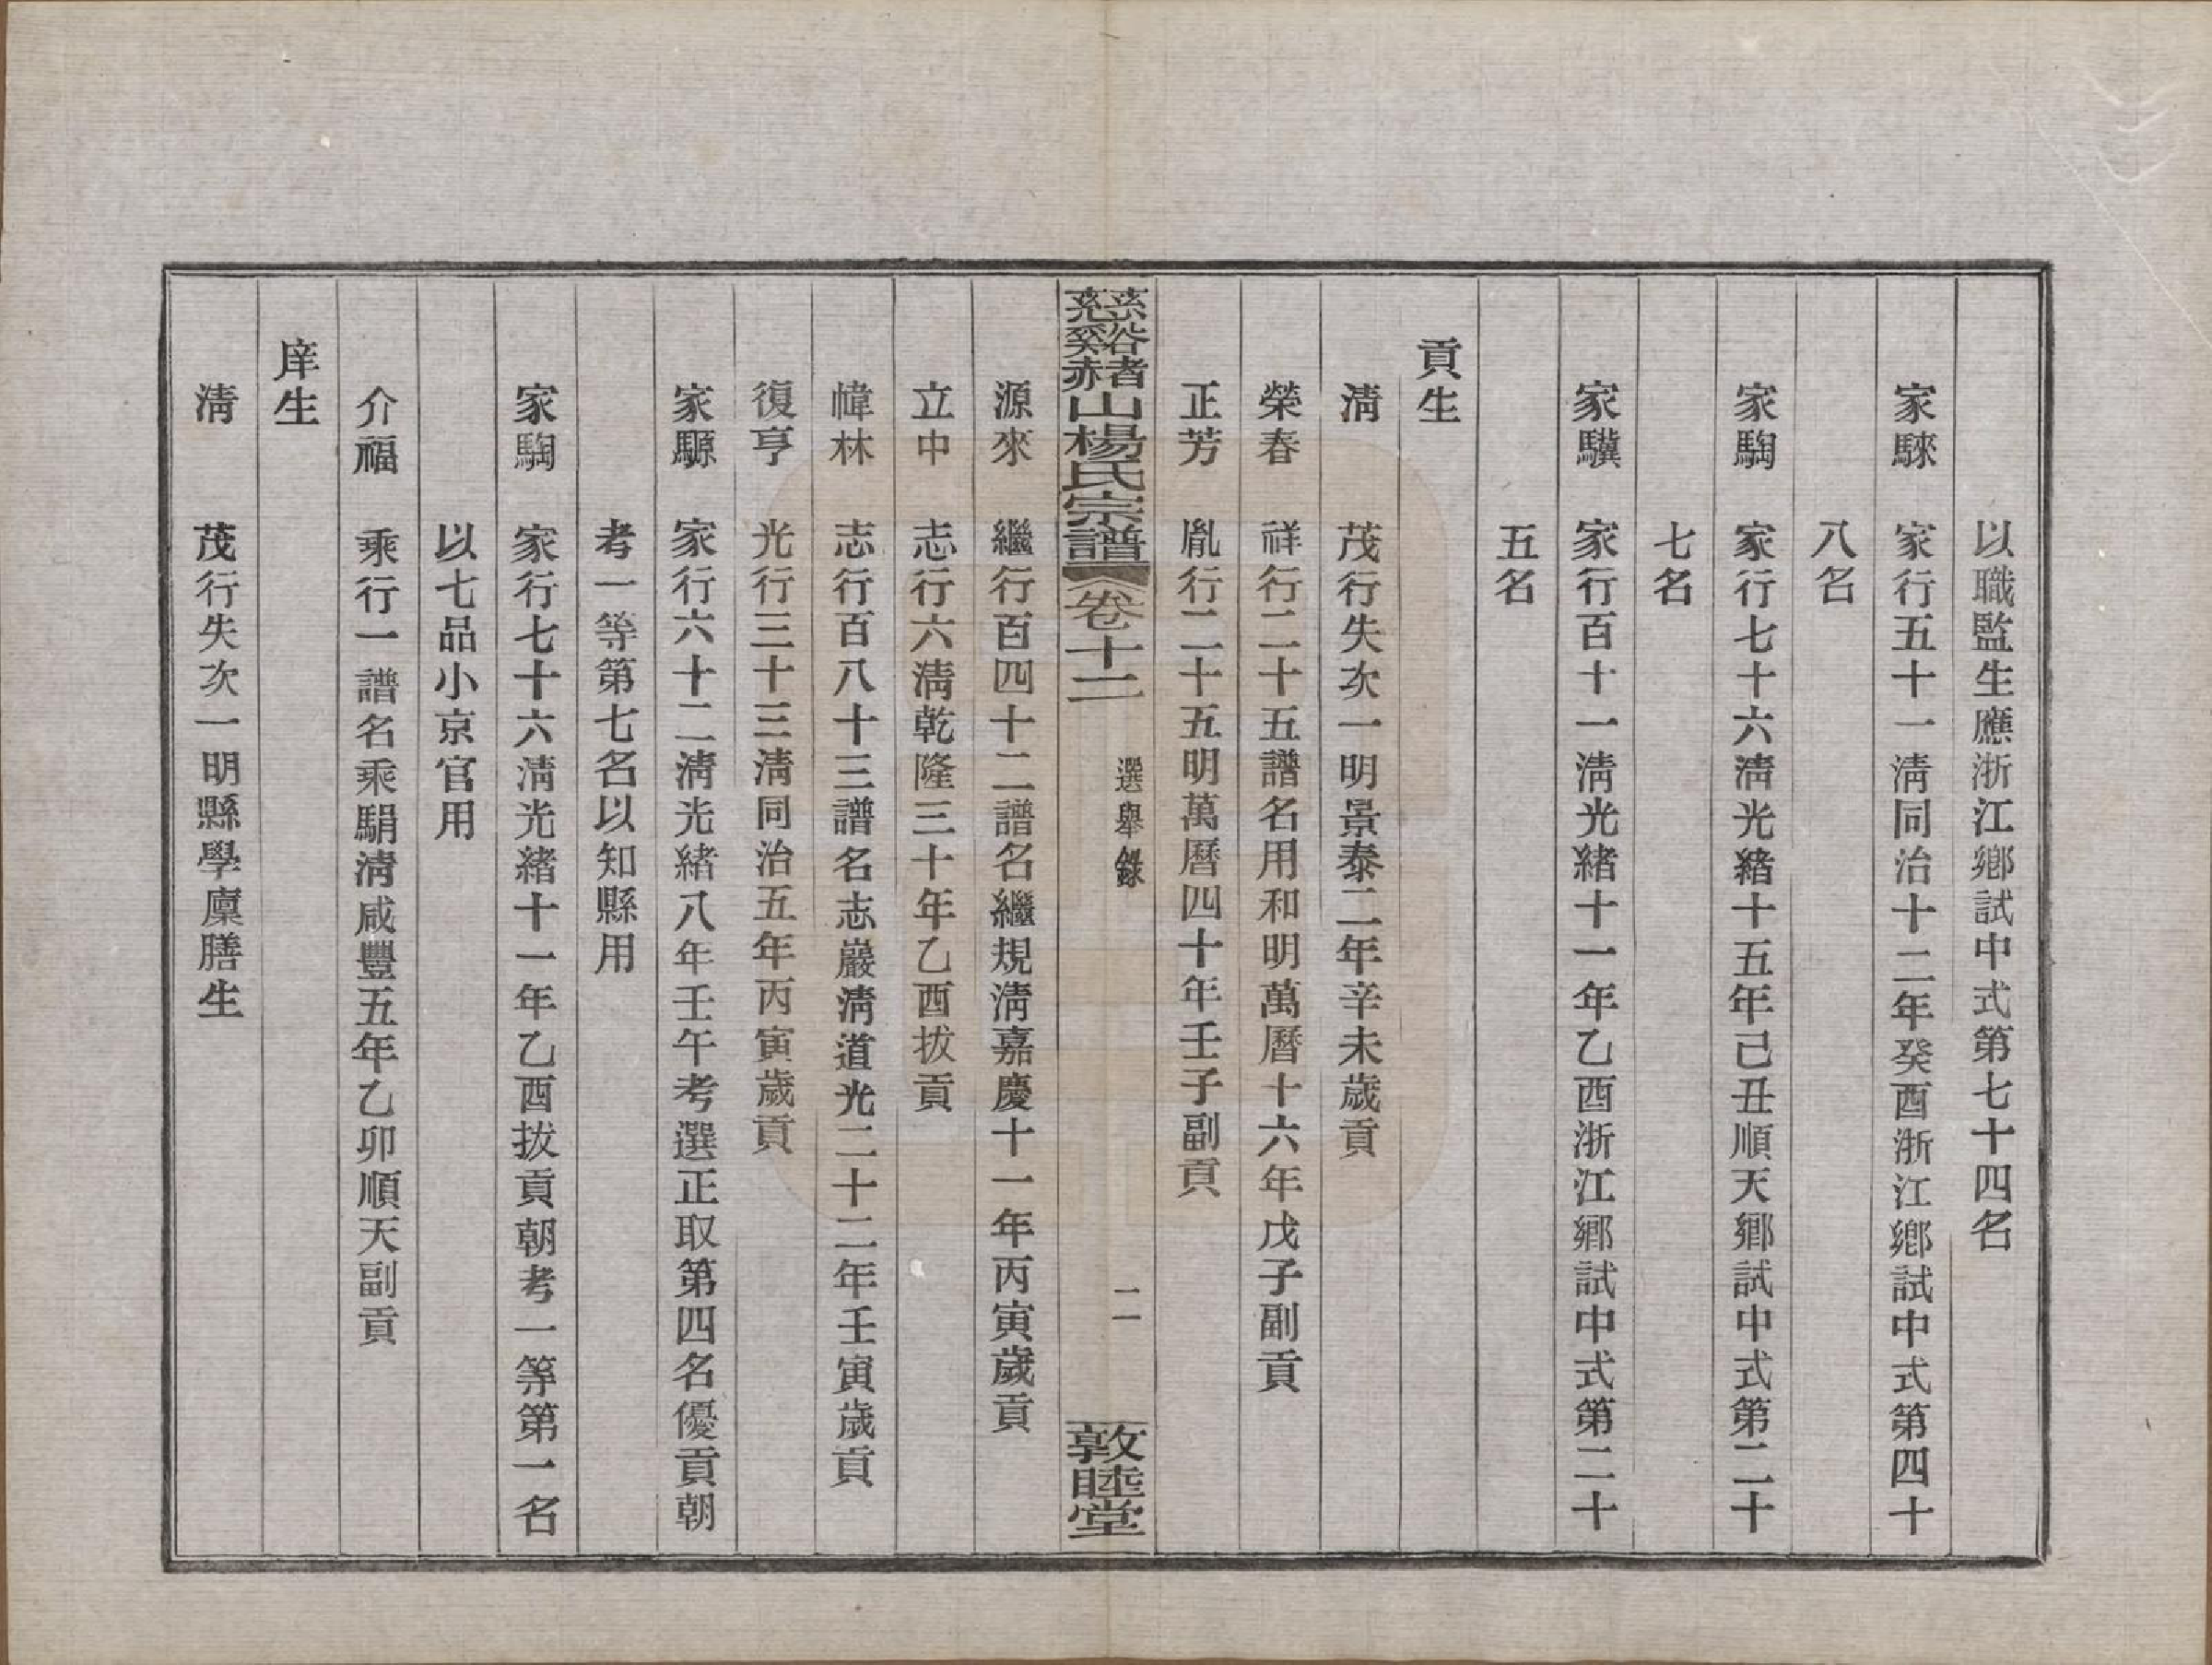 以職監生應浙江鄉試中式第七十四名
家騋　家行五十一淸同治十二年癸酉浙江鄉試中式第四十
八名
家騊　家行七十六淸光緖十五年己丑順天鄉試中式第二十
七名
家驥　家行百十一淸光緖十一年乙酉浙江鄉試中式第二十
五名
貢生
淸　茂行失次一明景泰二年辛未歲貢
榮春　祥行二十五譜名用和明萬曆十六年戊子副貢
正芳　胤行二十五明萬曆四十年壬子副貢
慈谿赭山楊氏宗譜　卷十二　選舉錄　二　敦睦堂
源來　繼行百四十二譜名繼規淸嘉慶十一年丙寅歲貢
立中　志行六淸乾隆三十年乙酉拔貢
幃林　志行百八十三譜名志巖淸道光二十二年壬寅歲貢
復亨　光行三十三淸同治五年丙寅歲貢
家騵　家行六十二淸光緖八年壬午考選正取第四名優貢朝
考一等第七名以知縣用
家騊　家行七十六淸光緖十一年乙酉拔貢朝考一等第一名
以七品小京官用
介福　乘行一譜名乘駽淸咸豐五年乙卯順天副貢
庠生
淸　茂行失次一明縣學廩膳生